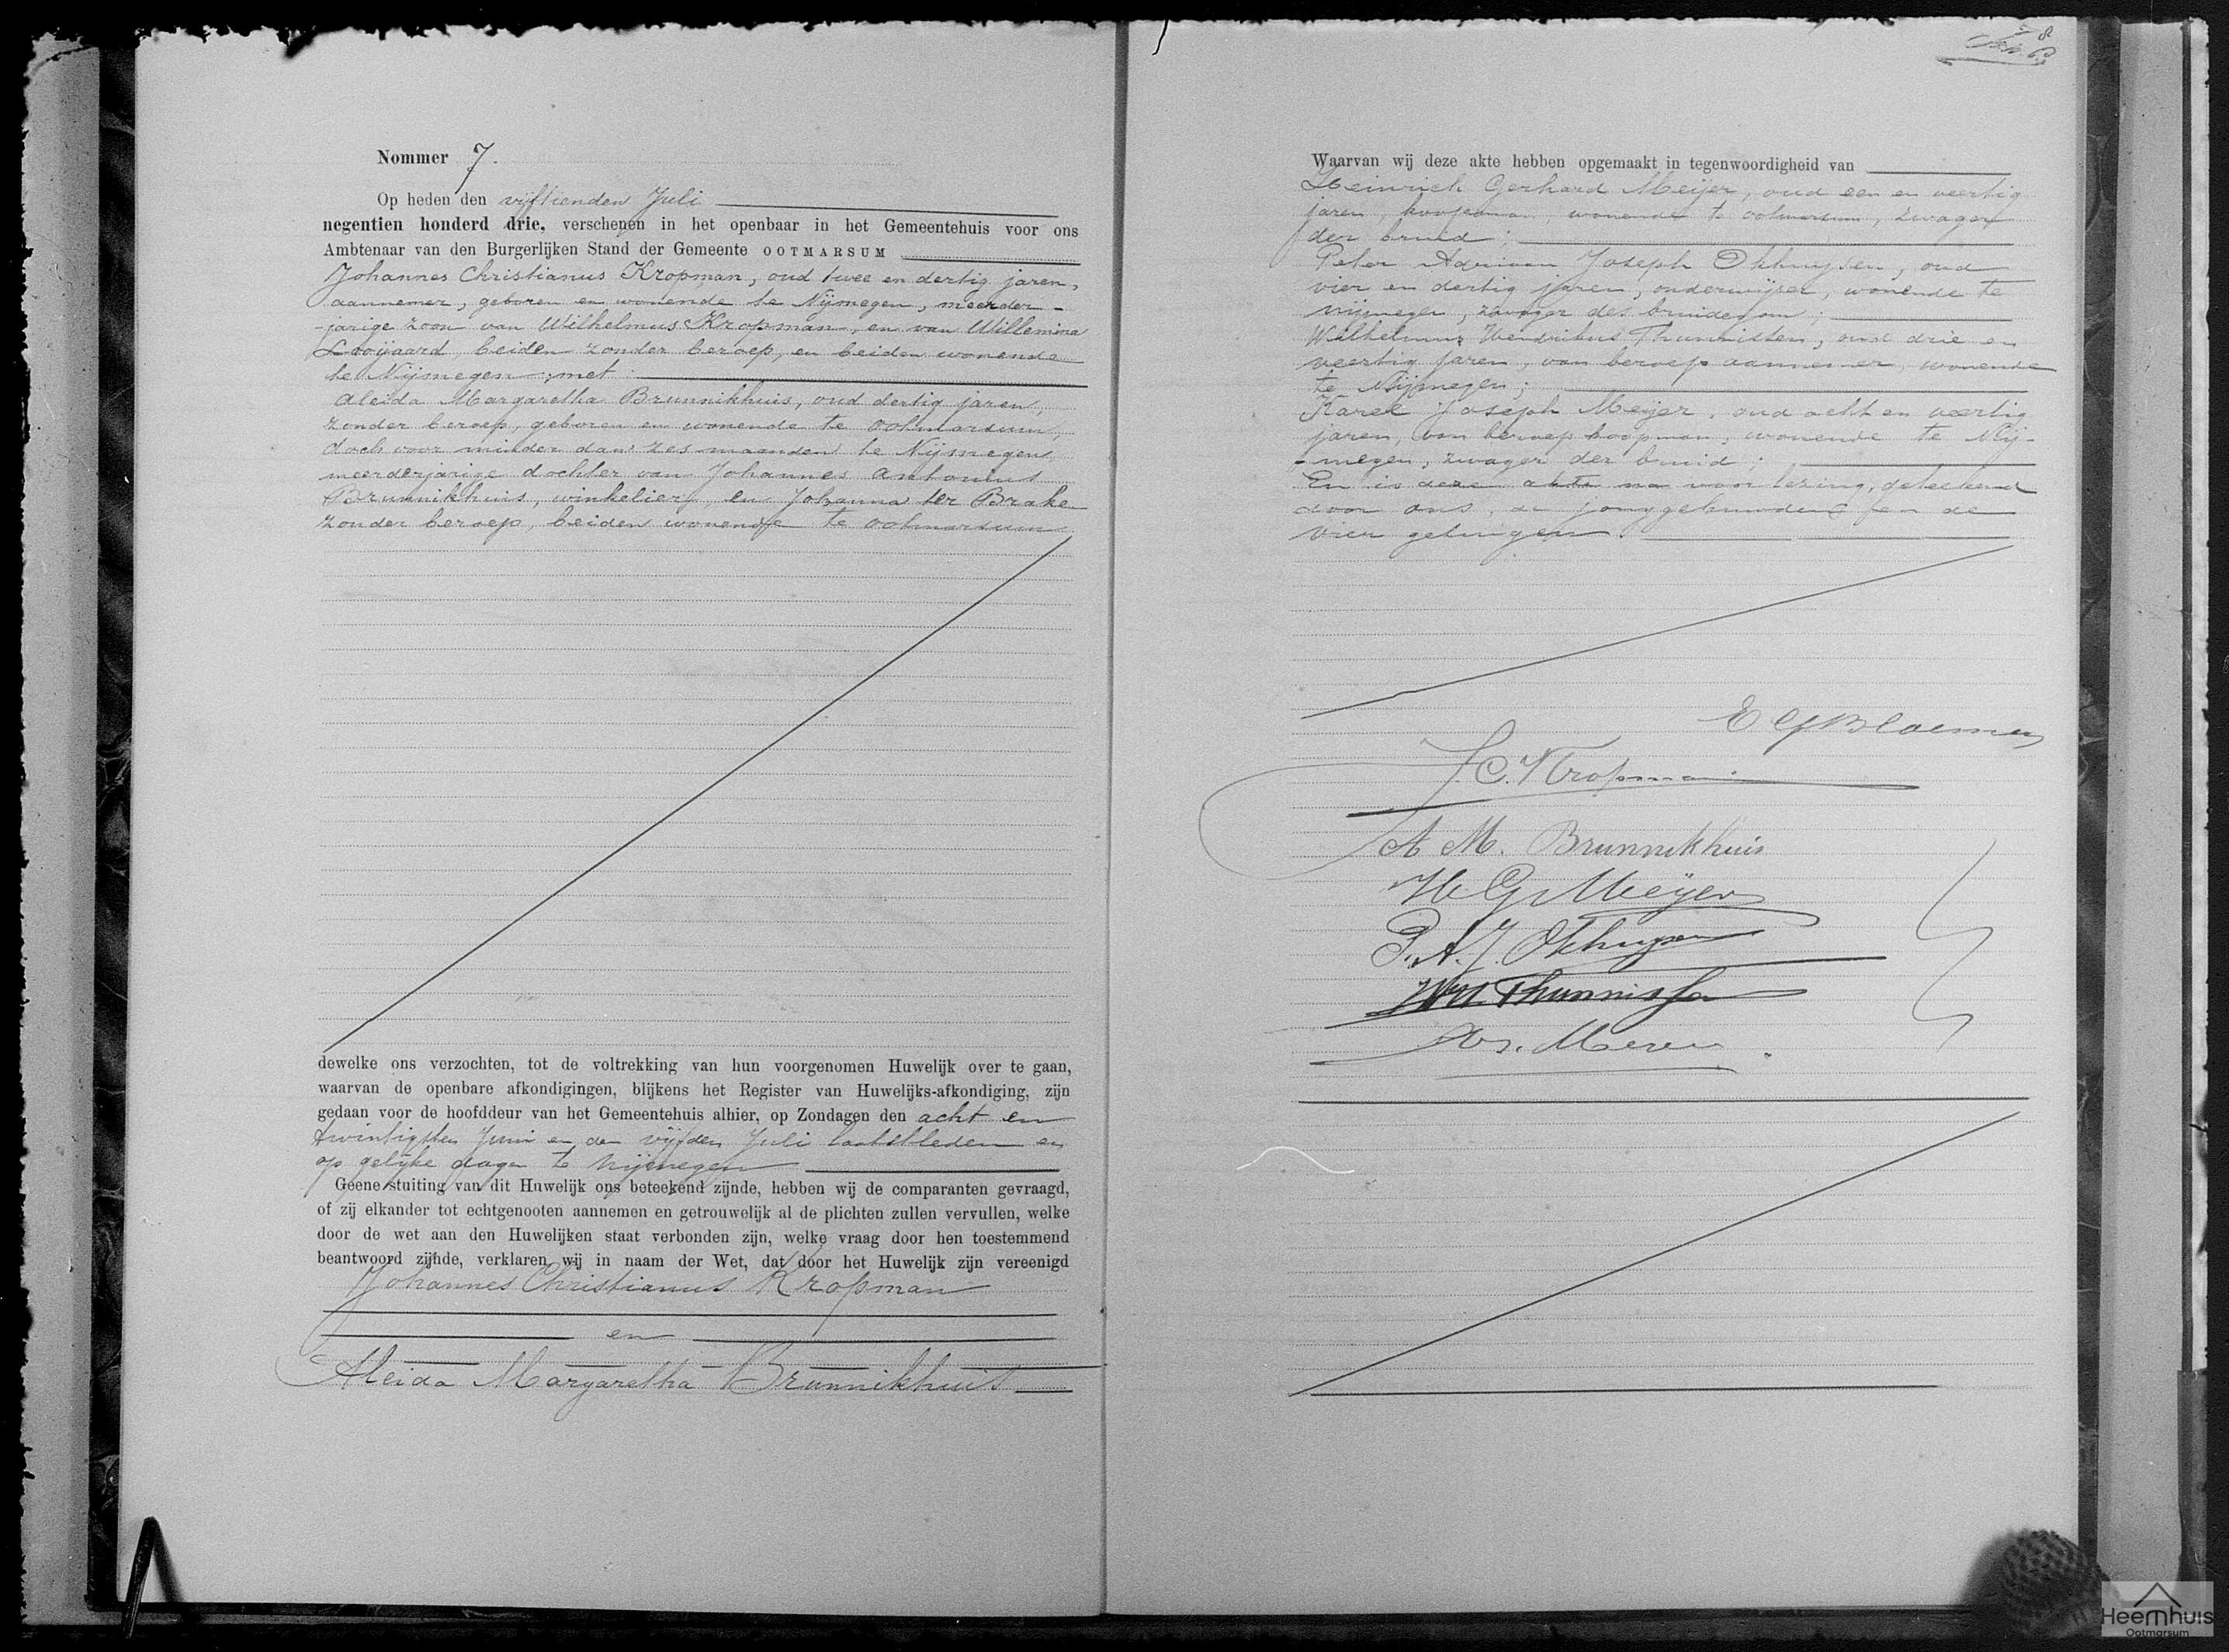 Nommer 7.
Op heden den vijftienden Juli
negentien honderd drie, verschenen in het openbaar in het Gemeentehuis voor ons
Ambtenaar van den Burgerlijken Stand der Gemeente OOTMARSUM
Johannes Christianus Kropman, oud twee en dertig jaren,
aannemer, geboren en wonende te Nijmegen, meerder-
-jarige zoon van Wilhelmus Kropman, en van Willemina
Looijaard, beiden zonder beroep, en beiden wonende
te Nijmegen; met:
Aleida Margaretha Brunnikhuis, oud dertig jaren,
zonder beroep, geboren en wonende te Ootmarsum,
doch voor minder dan zes maanden te Nijmegen,
meerderjarige dochter van Johannes Antonius
Brunnikhuis, winkelier, en Johanna ter Brake
zonder beroep, beiden wonende te Ootmarsum
dewelke ons verzochten, tot de voltrekking van hun voorgenomen Huwelijk over te gaan,
waarvan de openbare afkondigingen, blijkens het Register van Huwelijks-afkondiging, zijn
gedaan voor de hoofddeur van het Gemeentehuis alhier, op Zondagen den acht en
twintigsten Juni en den vijfden Juli laatstleden en
op gelijke dagen te Nijmegen
Geene stuiting van dit Huwelijk ons beteekend zijnde, hebben wij de comparanten gevraagd,
of zij elkander tot echtgenooten aannemen en getrouwelijk al de plichten zullen vervullen, welke
door de wet aan den Huwelijken staat verbonden zijn, welke vraag door hen toestemmend
beantwoord zijnde, verklaren wij in naam der Wet, dat door het Huwelijk zijn vereenigd
Johannes Christianus Kropman
en
Aleida Margaretha Brunnikhuis
8
Waarvan wij deze akte hebben opgemaakt in tegenwoordigheid van
Heinrich Gerhard Meijer, oud een en veertig
jaren, koopman, wonende te Ootmarsum, zwager
der bruid;
Peter Adriaan Joseph Okhuysen, oud
vier en dertig jaren, onderwijzer, wonende te
Nijmegen, zwager des bruidegoms;
Wilhelmus Hendrikus Thunnissen, oud drie en
veertig jaren, van beroep aannemer, wonende
te Nijmegen;
Karel Joseph Meijer, oud acht en veertig
jaren, van beroep koopman, wonende te Nij-
-megen, zwager der bruid;
En is deze akte na voorlezing, geteekend
door ons, de jonggehuwden en de
vier getuigen.
E G Bloemen
J. C. Kropman
A M. Brunnikhuis
H G Meijer
P. A. J. Okhuysen
WH. Thunnissen
Heemhuis
Ootmarsum